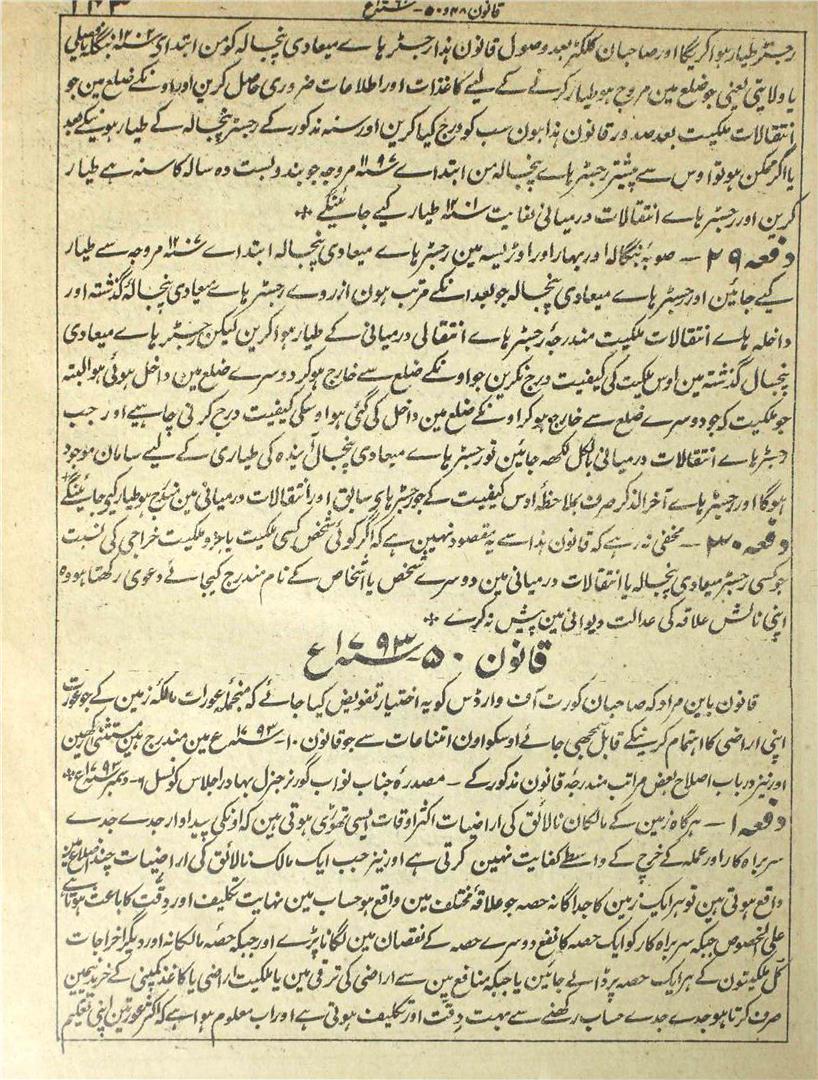 قانون ۴۸ و ۵۰ - سنہ ۱۷۹۳ع
رجسٹر طیار ہوا کریگا اور صاحبان کلکٹر بعد وصول قانون ہذا رجسٹر ہاے میعادی پنجسالہ کو من ابتداے سنہ ۱۲۰۲ بنگلہ یا فصلی
یا ولایتی یعنی جو ضلع مین مروج ہو طیار کرنے کے لیے کاغذات اور اطلاعات ضروری حاصل کرین اور اونکے ضلع مین جو
انتقالات ملکیت بعد صدور قانون ہذا ہون سب کو درج کیا کرین اور سنہ مذکور کے رجسٹر پنجسالہ کے طیار ہونیکے بعد
یا اگر ممکن ہو تو اوس سے پیشتر رجسٹر ہاے پنجسالہ من ابتداے سنہ ۱۱۹۷ مروجہ جو بندوبست دہ سالہ کا سنہ ہے طیار
کرین اور رجسٹر ہاے انتقالات درمیانی لغایت سنہ ۱۲۰۱ طیار کیے جائینگے *
دفعہ ۲۹ - صوبہ بنگالہ اور بہار اور اوڑیسہ مین رجسٹر ہاے میعادی پنجسالہ ابتداے سنہ ۱۲۰۷ مروجہ سے طیار
کیے جائین اور رجسٹر ہاے میعادی پنجسالہ جو بعد انکے مرتب ہون از روے رجسٹر ہاے میعادی پنجسالہ گذشتہ اور
داخلہ ہاے انتقالات ملکیت مندرجۂ رجسٹر ہاے انتقالی درمیانی کے طیار ہوا کرین لیکن رجسٹر ہاے میعادی
پنجسال گذشتہ مین اوس ملکیت کی کیفیت درج نکرین جو اونکے ضلع سے خارج ہوکر دوسرے ضلع مین داخل ہوئی ہو البتہ
جو ملکیت کہ جو دوسرے ضلع سے خارج ہوکر اونکے ضلع مین داخل کی گئی ہو اوسکی کیفیت درج کرنی چاہیے اور جب
رجسٹر ہاے انتقالات درمیانی بالکل لکھہ جائین تو رجسٹر ہاے میعادی پنجسال آیندہ کی طیاری کے لیے سامان موجود
ہوگا اور رجسٹر ہاے آخر الذکر صرف بملاحظۂ اوس کیفیت کے جو رجسٹر ہاے سابق اور انتقالات درمیانی مین مندرج ہو طیار کیے جائینگے *
دفعہ ۳۰ - مخفی نہ رہے کہ قانون ہذا سے یہ مقصود نہین ہے کہ اگر کوئی شخص کسی ملکیت یا جزو ملکیت خراجی کی نسبت
جو کسی رجسٹر میعادی پنجسالہ یا انتقالات درمیانی مین دوسرے شخص یا اشخاص کے نام مندرج کیجائے دعوی رکھتا ہو وہ
اپنی نالش علاقہ کی عدالت دیوانی مین پیش نہ کرے *
قانون ۵۰ - سنہ ۱۷۹۳ع
قانون باین مراد کہ صاحبان کورٹ آف وارڈس کو یہ اختیار تفویض کیا جائے کہ منجملۂ عورات مالکۂ زمین کے جو عورت
اپنی اراضی کا اہتمام کرنیکے قابل سمجھی جائے اوسکو اون امتناعات سے جو قانون ۱۰ - سنہ ۱۷۹۳ ع مین مندرج ہین مستثنی رکھین
اور نیز درباب اصلاح بعض مراتب مندرجۂ قانون مذکور کے - مصدرۂ جناب نواب گورنر جنرل بہادر اجلاس کونسل ۶ - دسمبر سنہ ۱۷۹۳ع *
دفعہ ۱ - ہرگاہ زمین کے مالکان نالائق کی اراضیات اکثر اوقات ایسی تھوڑی ہوتی ہین کہ اونکی پیداوار جدے جدے
سربراہ کار اور عملہ کے خرچ کے واسطے کفایت نہین کرتی ہے اور نیز جب ایک مالک نالائق کی اراضیات چند اضلاع مین
واقع ہوتی ہین تو ہر ایک زمین کا جداگانہ حصہ جو علاقہ مختلف مین واقع ہو حساب مین نہایت تکلیف اور دقت کا باعث ہوتا ہے
علی الخصوص جبکہ سربراہ کار کو ایک حصہ کا نفع دوسرے حصہ کے نقصان مین لگانا پڑے اور جبکہ حصہ مالکانہ اور دیگر اخراجات
کل ملکیتون کے ہر ایک حصہ پر ڈالے جائین یا جبکہ منافع مین سے اراضی کی ترقی مین یا ملکیت اراضی یا کاغذ کمپنی کے خریدنے مین
صرف کرتا ہو جدے جدے حساب رکھنے سے بہت دقت اور تکلیف ہوتی ہے اور اب معلوم ہوا ہے کہ اکثر عورتین اپنی تعلیم